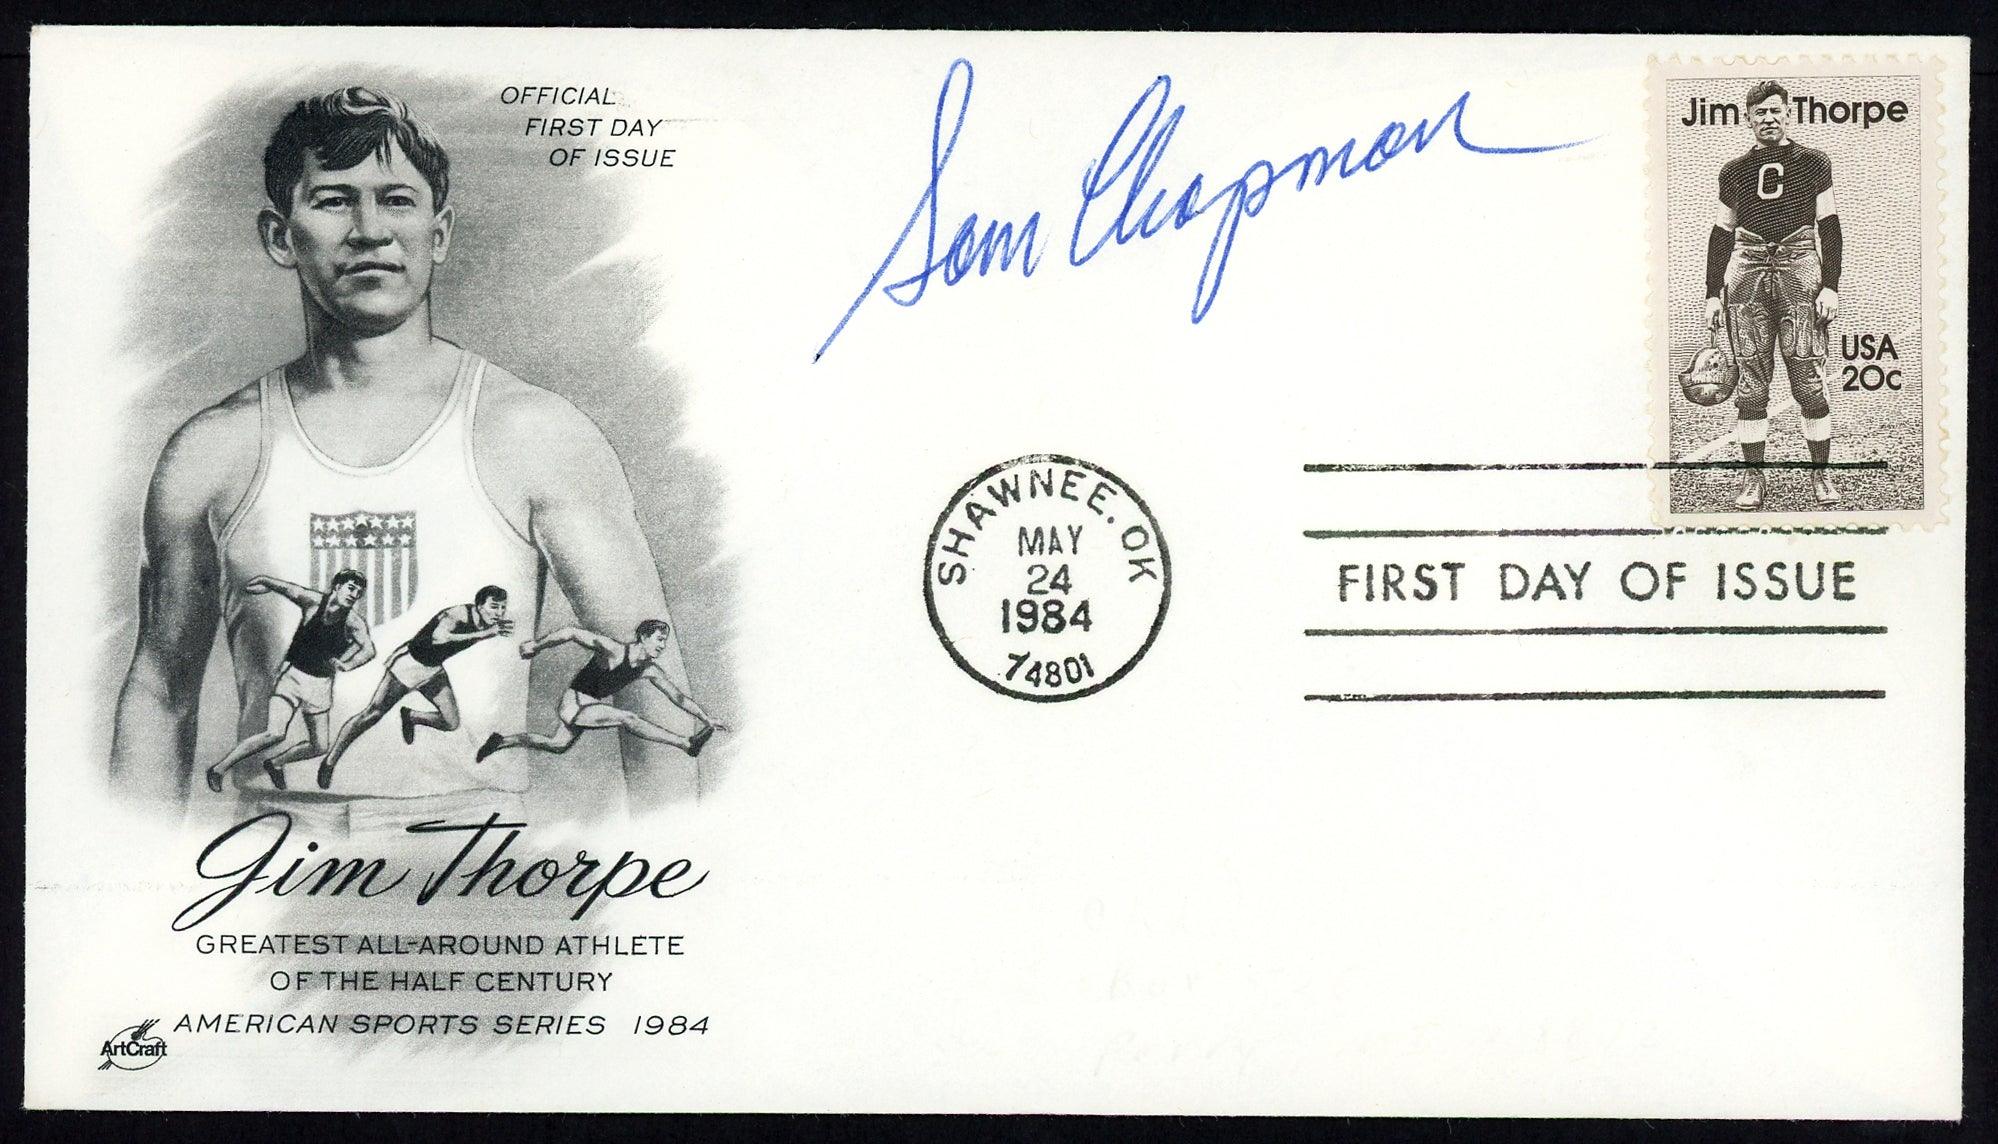 OFFICIAL
FIRST DAY
OF ISSUE
Sam Chapman
Jim Thorpe
C
USA
20c
SHAWNEE, OK
MAY
24
1984
74801
FIRST DAY OF ISSUE
Jim Thorpe
GREATEST ALL-AROUND ATHLETE
OF THE HALF CENTURY
AMERICAN SPORTS SERIES 1984
ArtCraft